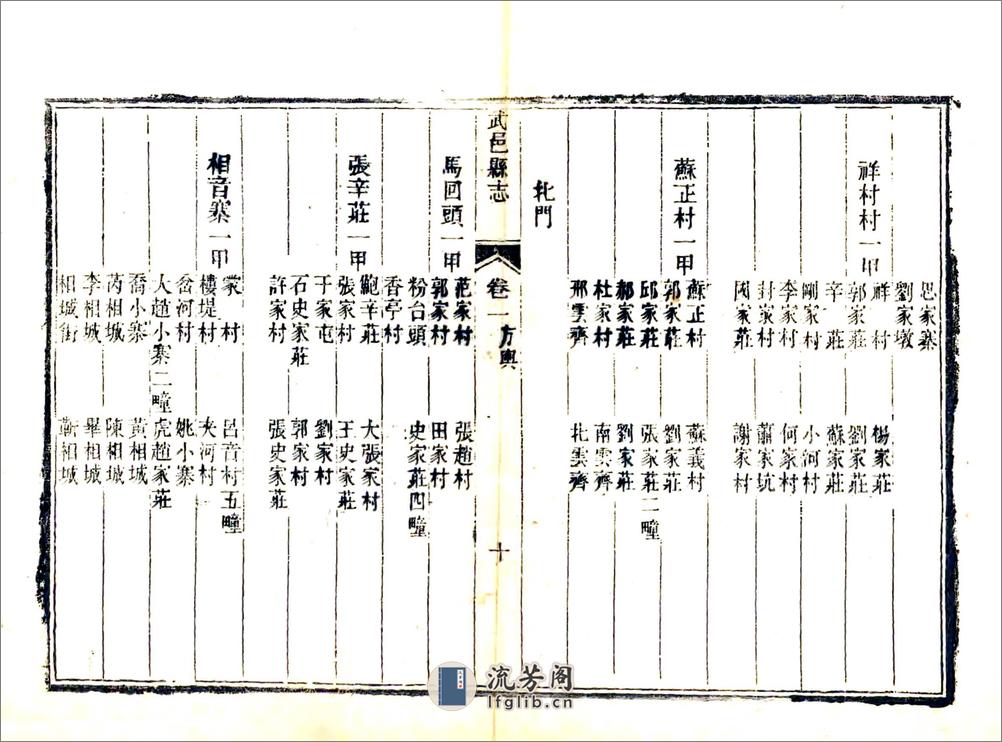 思家寨
劉家墩
祥村村一甲
祥村 楊家莊
郭家莊 劉家莊
辛莊 蘇家莊
剛家村 小河村
李家村 何家村
封村 蕭家坑
國家莊 謝家村
蘇正村一甲
蘇正村 蘇義村
郭家莊 劉家莊
邱家莊 張家莊二畽
郝家莊 劉家莊
杜家村 南雲齊
邢雲齊 北雲齊
北門
武邑縣志 卷一 方輿 十
馬回頭一甲
范家村 張趙村
郭家村 田家村
粉台頭 史家莊四畽
香亭村
張辛莊一甲
鮑辛莊 大張家村
張家村 王史家莊
于家屯 劉家村
石史家莊 郭家村
許家村 張史家莊
相音寨一甲
村 呂音村五畽
樓堤村 夾河村
岔河村 姚小寨
大趙小寨二畽 虎趙家莊
喬小寨 黃相城
芮相城 陳相城
李相城 畢相城
相城街 靳相城
流芳阁
lfglib.cn